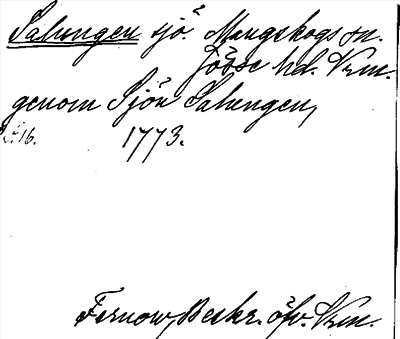 Salungen sjö. Mangskogs sn.
Jösse hd. Vrm.
genom Sjön Salungen,
s. 16. 1773.
Fernow, Beskr. öfv. Vrm.